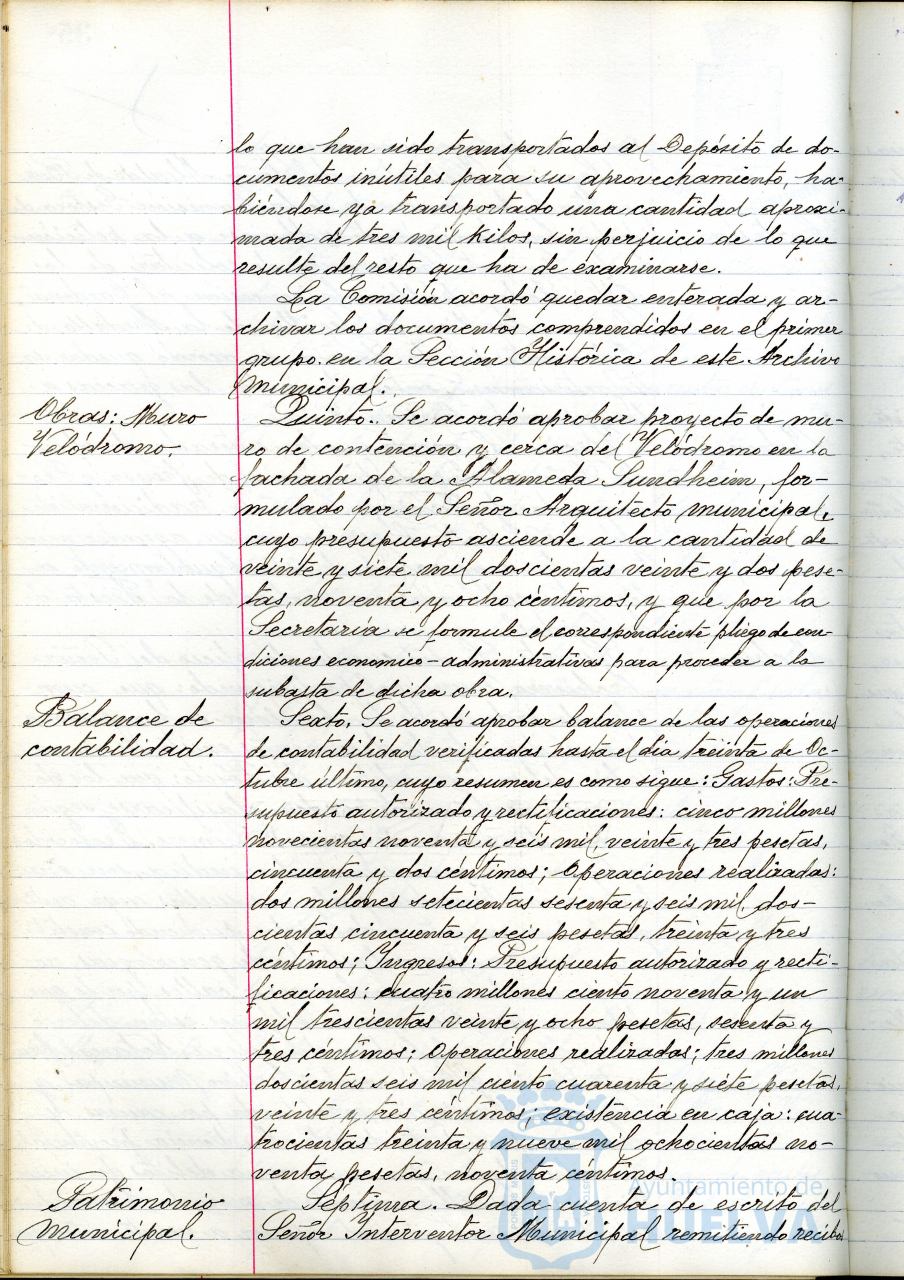 lo que han sido transportados al Depósito de do-
cumentos inútiles para su aprovechamiento, ha-
biéndose ya transportado una cantidad aproxi-
mada de tres mil kilos, sin perjuicio de lo que
resulte del resto que ha de examinarse.
La Comisión acordó quedar enterada y ar-
chivar los documentos comprendidos en el primer
grupo en la Sección Histórica de este Archivo
Municipal.
Obras: Muro
Velódromo.
Quinto.. Se acordó aprobar proyecto de mu-
ro de contención y cerca del Velódromo en la
fachada de la Alameda Sundheim, for-
mulado por el Señor Arquitecto municipal,
cuyo presupuesto asciende a la cantidad de
veinte y siete mil doscientas veinte y dos pese-
tas, noventa y ocho céntimos, y que por la
Secretaría se formule el correspondiente pliego de con-
diciones económico-administrativas para proceder a la
subasta de dicha obra.
Balance de
contabilidad.
Sexto. Se acordó aprobar balance de las operaciones
de contabilidad verificadas hasta el día treinta de Oc-
tubre último, cuyo resumen es como sigue: Gastos: Pre-
supuesto autorizado y rectificaciones: cinco millones
novecientas noventa y seis mil, veinte y tres pesetas,
cincuenta y dos céntimos; Operaciones realizadas:
dos millones setecientas sesenta y seis mil dos-
cientas cincuenta y seis pesetas, treinta y tres
céntimos; Ingresos: Presupuesto autorizado y recti-
ficaciones: cuatro millones ciento noventa y un
mil trescientas veinte y ocho pesetas, sesenta y
tres céntimos; Operaciones realizadas; tres millones
doscientas seis mil ciento cuarenta y siete pesetas,
veinte y tres céntimos; existencia en caja: cua-
trocientas treinta y nueve mil ochocientas no-
venta pesetas, noventa céntimos.
Patrimonio
Municipal.
Septima. Dada cuenta de escrito del
Señor Interventor Municipal remitiendo recibos
Ayuntamiento de
HUELVA